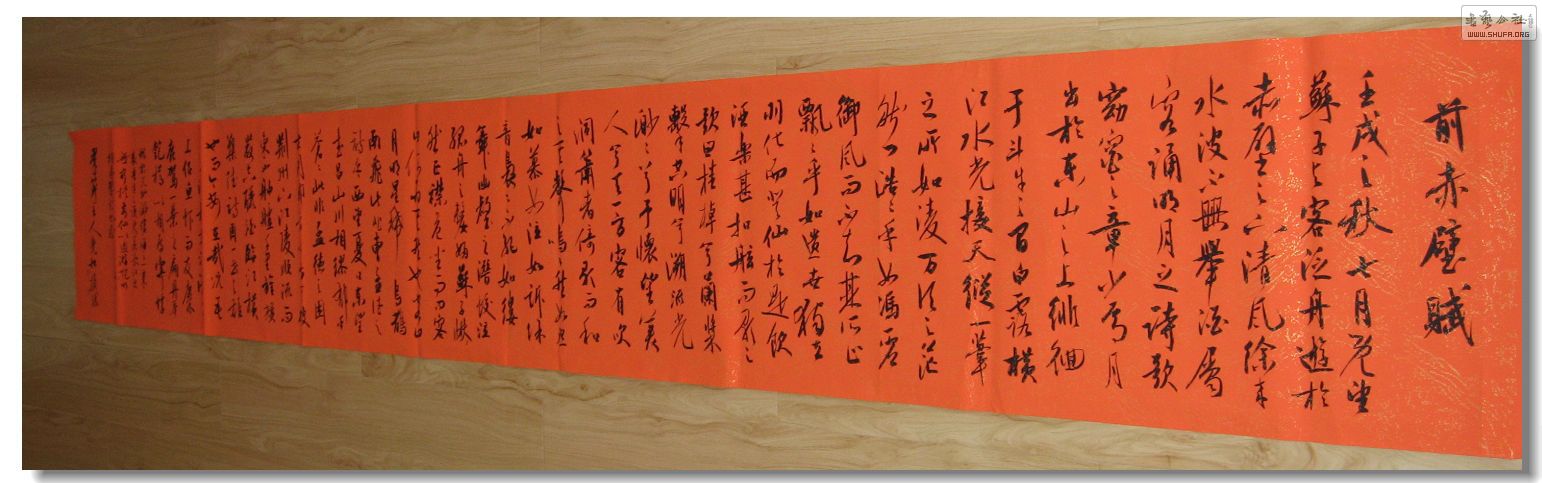 前赤壁賦
壬戌之秋七月既望
蘇子与客泛舟遊於
赤壁之下清风徐来
水波不興舉酒屬
客诵明月之詩歌
窈窕之章少焉月
出於东山之上徘徊
于斗牛之间白露横
江水光接天縱一葦
之所如凌万顷之茫
然浩浩乎如馮虚
御风而不知其所止
飄飄乎如遗世獨立
羽化而登仙於是飲
酒樂甚扣舷而歌之
歌曰桂棹兮蘭槳
擊空明兮溯流光
渺渺兮于懷望美
人兮天一方客有吹
洞簫者倚歌而和
之其聲嗚然如怨
如慕如泣如訴餘
音裊裊不絕如縷
舞幽壑之潛蛟泣
孤舟之嫠婦蘇子愀
然正襟危坐而问客
曰何为其然也客曰
月明星稀烏鵲
南飛此非曹孟德之
詩乎西望夏口東望
武昌山川相繆鬱乎
蒼蒼此非孟德之困
荆州下江陵順流而
東也舳艫千里旌旗
蔽空釃酒临江横
槊賦诗固一世之雄
也而今安在哉况吾
侣魚虾而友麋
鹿駕一葉之扁舟
舉匏樽以相屬寄
WWW.SHUFA.ORG